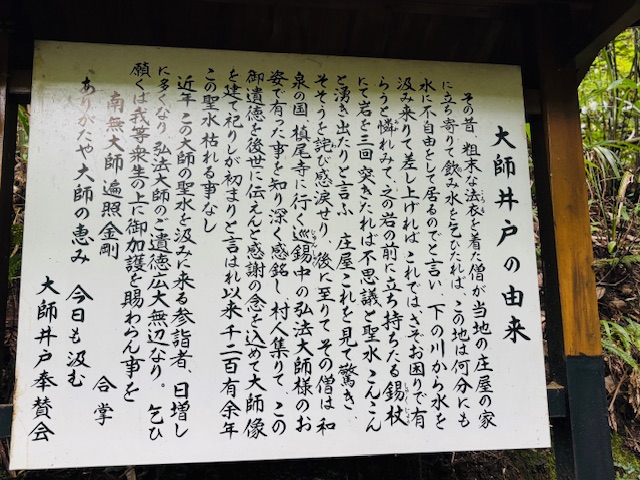 大師井戸の由来
その昔 粗末な法衣を着た僧が当地の庄屋の家
に立ち寄りて飲み水を乞ひたれば この地は何分にも
水に不自由をして居るのでと言い、下の川から水を
汲み来りて差し上げければ これではさぞお困りで有
らうと憐れみて、之の岩の前に立ち持ちたる錫杖
にて岩を三回突きたれば不思議と聖水こんこん
と湧き出たりと言ふ 庄屋これを見て驚き、
そそうを詫び感涙せり、後に至りて その僧は和
泉の国 槙尾寺に行く巡錫中の弘法大師様のお
姿で有った事を知り深く感銘し、村人集りて、この
御遺徳を後世に伝えんと感謝の念を込めて大師像
を建て祀りしが初まりと言はれ以来千二百有余年
この聖水 枯れる事なし
近年この大師の聖水を汲みに来る参詣者、日増し
に多くなり、弘法大師のご遺徳広大無辺なり。乞ひ
願くは我等衆生の上に御加護を賜わらん事を
合掌
南無大師遍照金剛
ありがたや大師の恵み 今日も汲む
大師井戸奉賛会